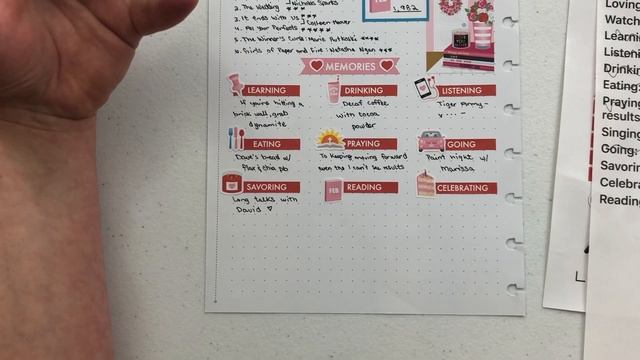 2. The Wedding
Nicholas Sparks
3. It Ends with Us
Colleen Hoover
4. All Your Perfects
5. The Winner's Curse: Marie Rutkoski
6. Girls of Paper and Fire: Natasha Ngan
1,982
MEMORIES
LEARNING
If you're hitting a
brick wall, grab
dynamite
DRINKING
Decaf coffee
with cocoa
powder
LISTENING
Tiger Army-
EATING
Dave's bread w/
flax & chia pb
PRAYING
To keeping moving forward
even tho I can't see results
GOING
Paint night w/
Marissa
SAVORING
Long talks with
David
FEB
READING
CELEBRATING
Loving
Watch
Learni
Listeni
Drinkin
Eating:
Prayin
results
Singing
Going:
Savorin
Celebra
Readin